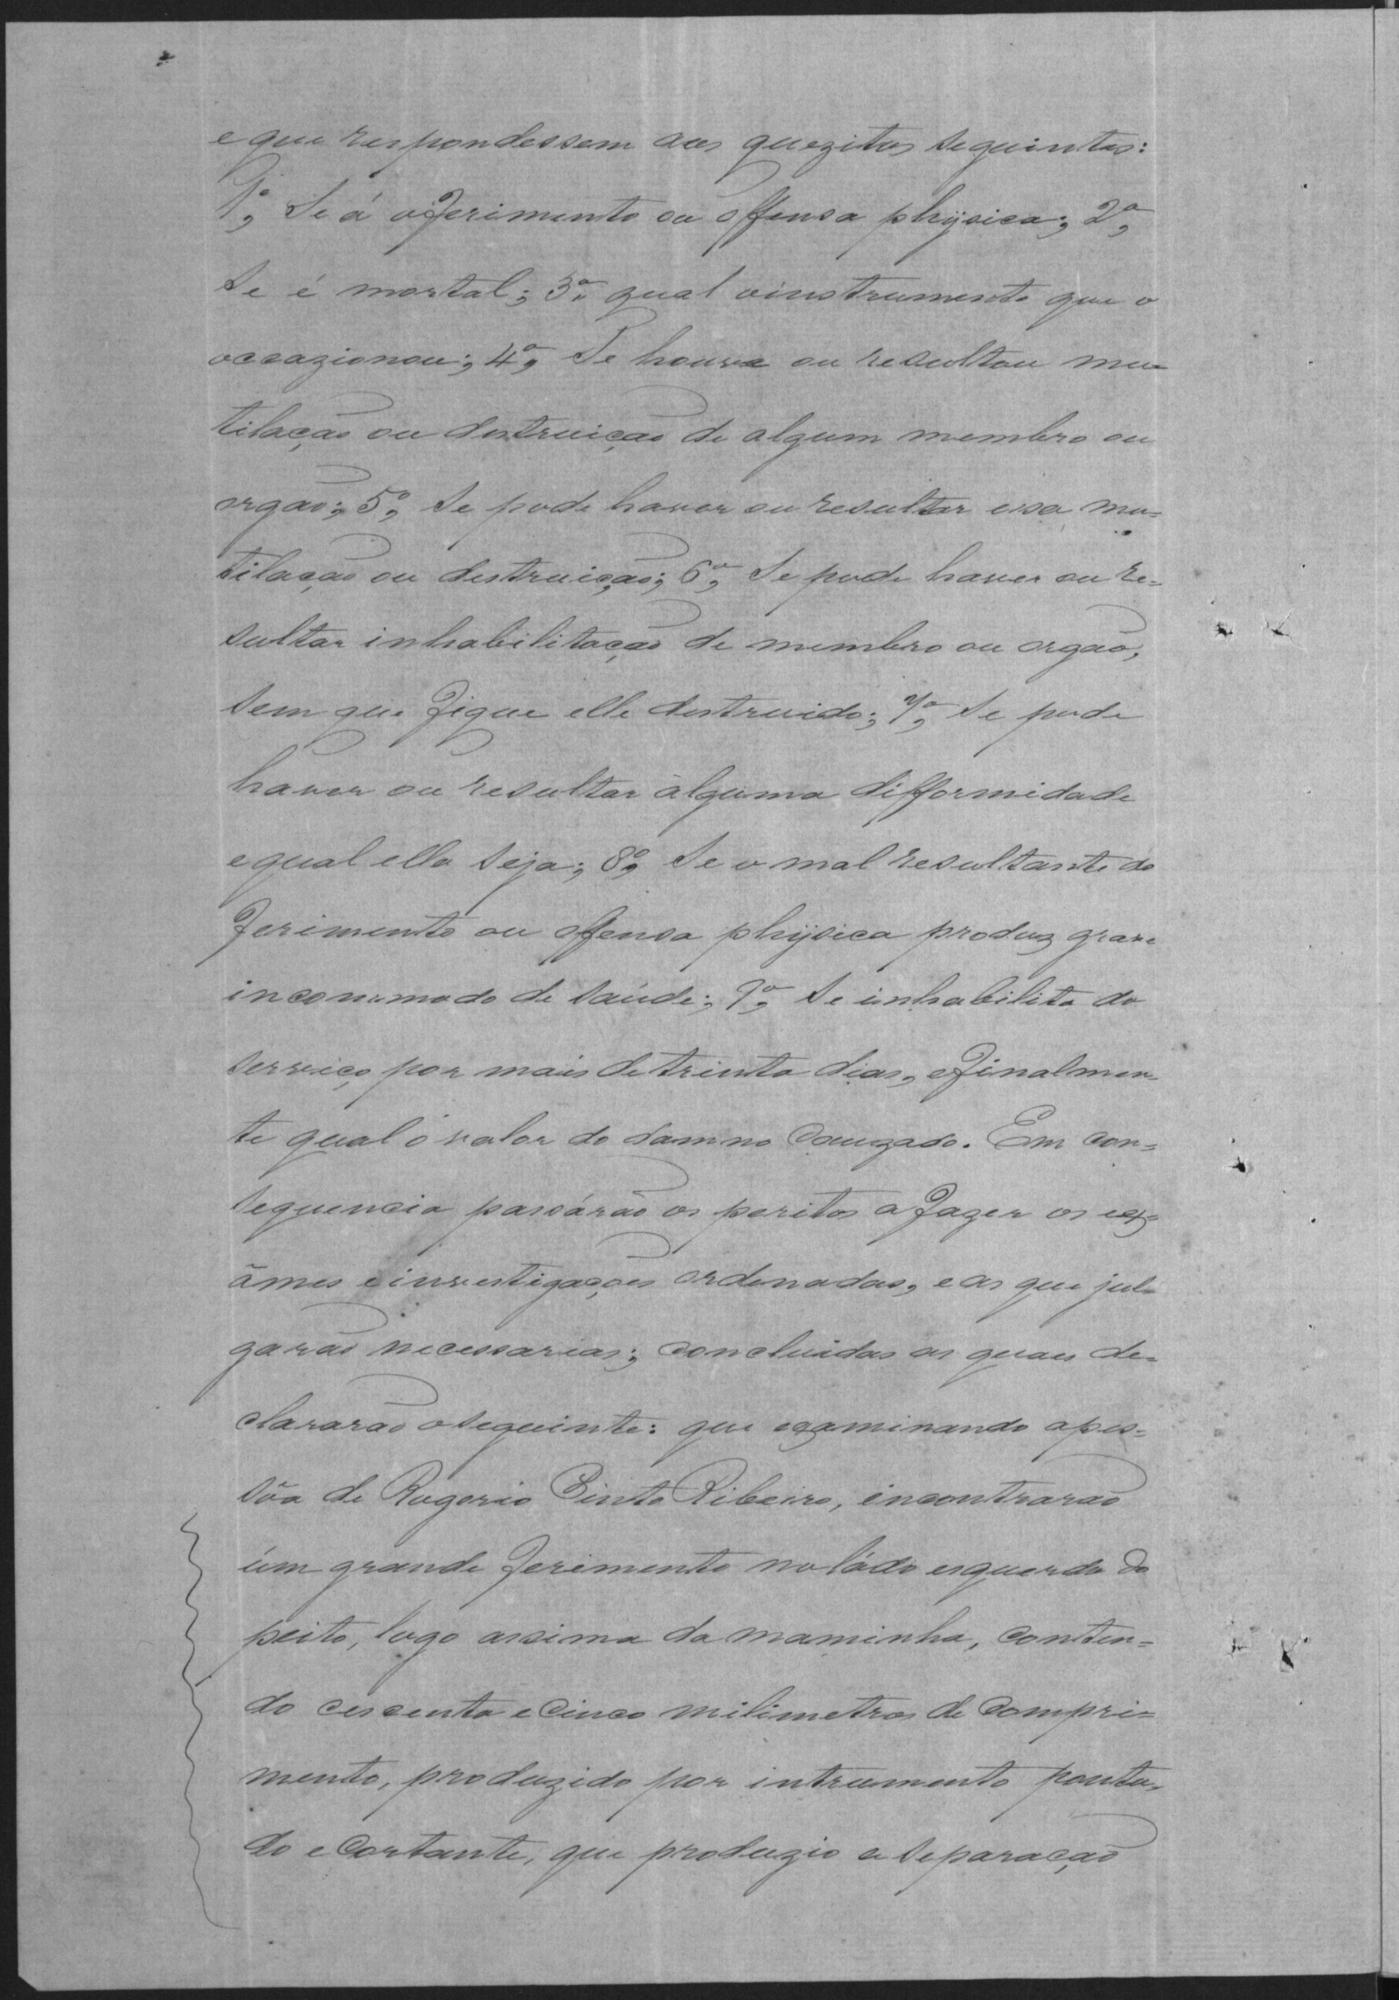 e que respondessem aos quezitos seguintes:
1º, Se á o ferimento ou offensa physica; 2º,
se é mortal; 3º qual o instrumento que o
occazionou; 4º, Se houve ou resultou mu-
tilação ou destruição de algum membro ou
orgão; 5º, Se pode haver ou resultar essa mu-
tilação ou destruição; 6º, Se pode haver ou re-
sultar inhabilitação de membro ou orgão,
sem que fique elle destruido; 7º, Se pode
haver ou resultar alguma difformidade
e qual ella seja; 8º, Se o mal resultante do
ferimento ou offensa physica produz grave
incommodo de saúde; 9º, Se inhabilita do
serviço por mais de trinta dias, e finalmen-
te qual o valor do damno cauzado. Em con-
sequencia passárão os peritos a fazer os ex-
âmes e investigações ordenadas, e as que jul-
garão necessarias; concluidas as quaes de-
clararão o seguinte: que examinando a pes-
sôa de Rogerio Pinto Ribeiro, incontrarão
úm grande ferimento no ládo esquerdo do
peito, logo assima da maminha, conten-
do cescenta e cinco milimetros de compri-
mento, produzido por intrumento pontu-
do e cortante, que produzio a separação